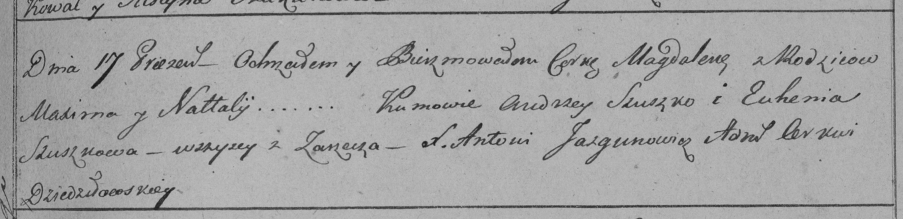 Kowal y
Dnia 17 Prezent Ochrzciłem y Bierzmowałem Corkę Magdalenę z Rodzicow
Maxima y Nattalij....... Kumowie Andrzey Szuszko i Euhenia
Szuszkowa — wszyscy z Zarzecza — X. Antoni Jazgunowicz Adm Cerkwi
Dziedziłowskiey